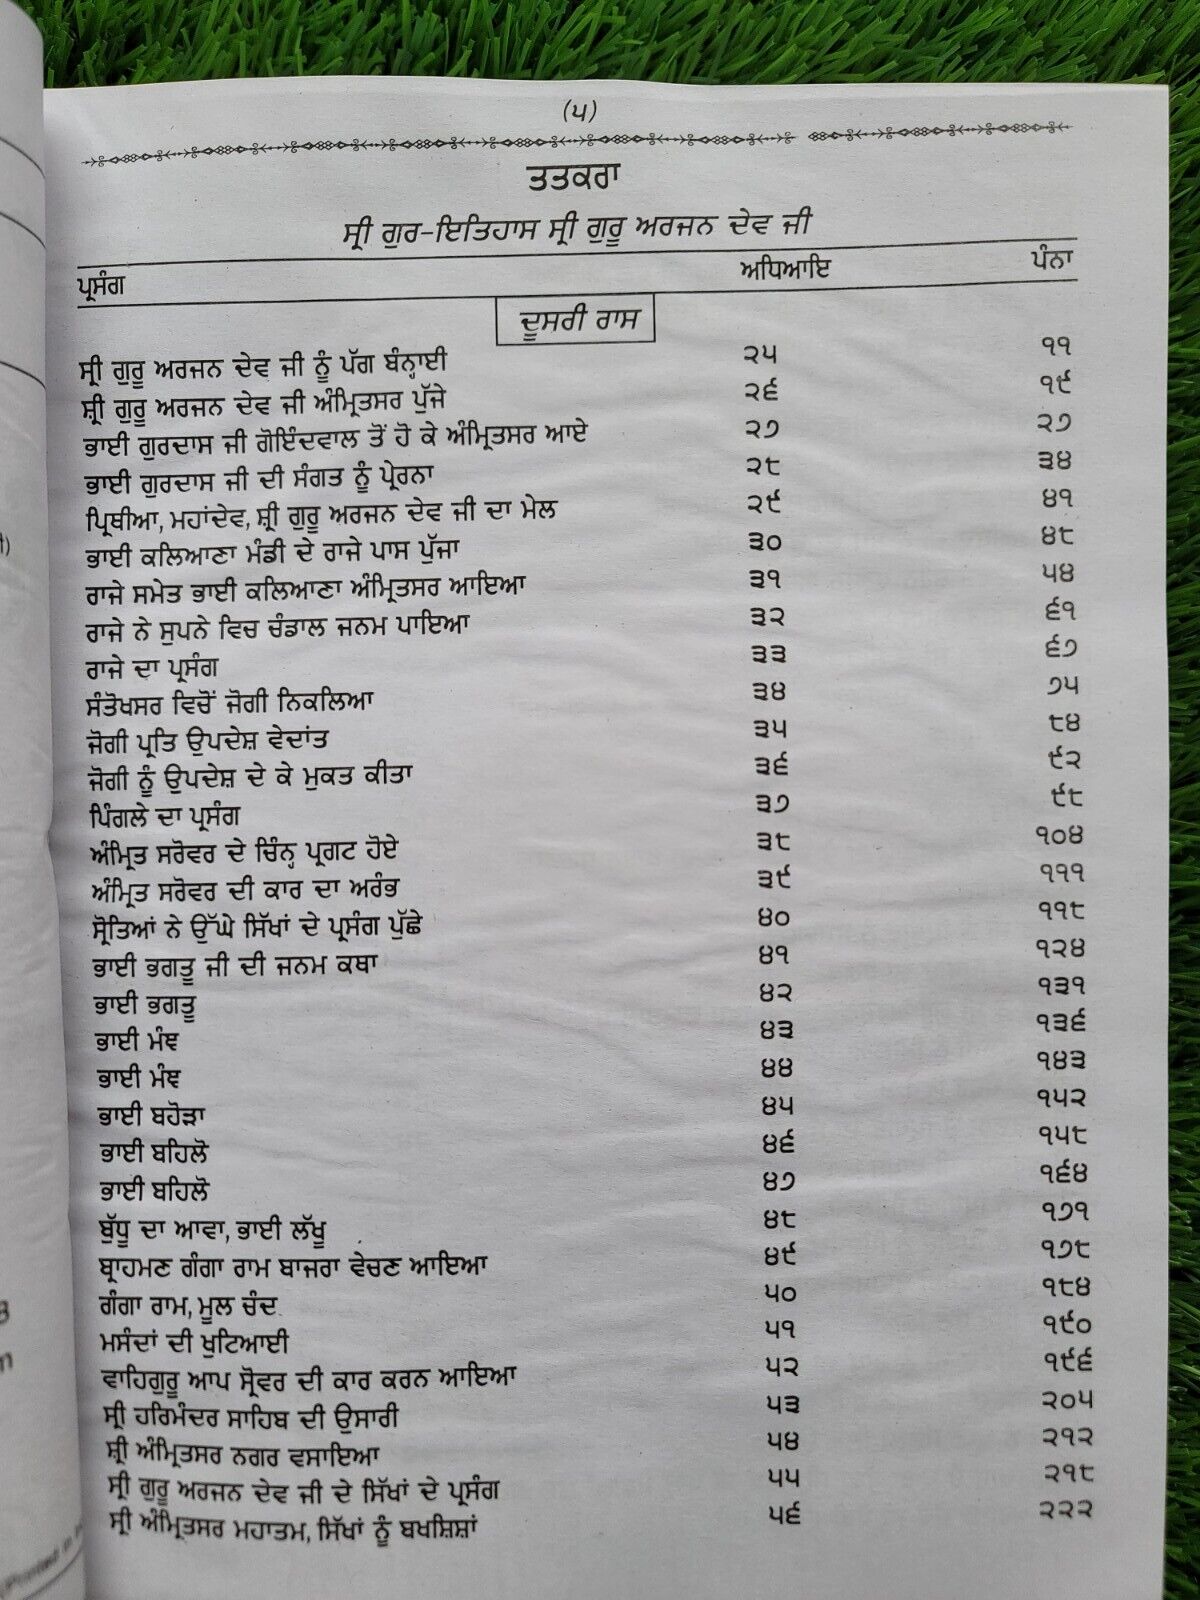 (੫)
ਤਤਕਰਾ
ਸ੍ਰੀ ਗੁਰ-ਇਤਿਹਾਸ ਸ੍ਰੀ ਗੁਰੂ ਅਰਜਨ ਦੇਵ ਜੀ
ਪ੍ਰਸੰਗ ਅਧਿਆਇ ਪੰਨਾ
ਦੂਸਰੀ ਰਾਸ
ਸ੍ਰੀ ਗੁਰੂ ਅਰਜਨ ਦੇਵ ਜੀ ਨੂੰ ਪੱਗ ਬੰਨ੍ਹਾਈ ੨੫ ੧੧
ਸ਼੍ਰੀ ਗੁਰੂ ਅਰਜਨ ਦੇਵ ਜੀ ਅੰਮ੍ਰਿਤਸਰ ਪੁੱਜੇ ੨੬ ੧੯
ਭਾਈ ਗੁਰਦਾਸ ਜੀ ਗੋਇੰਦਵਾਲ ਤੋਂ ਹੋ ਕੇ ਅੰਮ੍ਰਿਤਸਰ ਆਏ ੨੭ ੨੭
ਭਾਈ ਗੁਰਦਾਸ ਜੀ ਦੀ ਸੰਗਤ ਨੂੰ ਪ੍ਰੇਰਨਾ ੨੮ ੩੪
ਪ੍ਰਿਥੀਆ, ਮਹਾਂਦੇਵ, ਸ਼੍ਰੀ ਗੁਰੂ ਅਰਜਨ ਦੇਵ ਜੀ ਦਾ ਮੇਲ ੨੯ ੪੧
ਭਾਈ ਕਲਿਆਣਾ ਮੰਡੀ ਦੇ ਰਾਜੇ ਪਾਸ ਪੁੱਜਾ ੩੦ ੪੮
ਰਾਜੇ ਸਮੇਤ ਭਾਈ ਕਲਿਆਣਾ ਅੰਮ੍ਰਿਤਸਰ ਆਇਆ ੩੧ ੫੪
ਰਾਜੇ ਨੇ ਸੁਪਨੇ ਵਿਚ ਚੰਡਾਲ ਜਨਮ ਪਾਇਆ ੩੨ ੬੧
ਰਾਜੇ ਦਾ ਪ੍ਰਸੰਗ ੩੩ ੬੭
ਸੰਤੋਖਸਰ ਵਿਚੋਂ ਜੋਗੀ ਨਿਕਲਿਆ ੩੪ ੭੫
ਜੋਗੀ ਪ੍ਰਤਿ ਉਪਦੇਸ਼ ਵੇਦਾਂਤ ੩੫ ੮੪
ਜੋਗੀ ਨੂੰ ਉਪਦੇਸ਼ ਦੇ ਕੇ ਮੁਕਤ ਕੀਤਾ ੩੬ ੯੨
ਪਿੰਗਲੇ ਦਾ ਪ੍ਰਸੰਗ ੩੭ ੯੮
ਅੰਮ੍ਰਿਤ ਸਰੋਵਰ ਦੇ ਚਿੰਨ੍ਹ ਪ੍ਰਗਟ ਹੋਏ ੩੮ ੧੦੪
ਅੰਮ੍ਰਿਤ ਸਰੋਵਰ ਦੀ ਕਾਰ ਦਾ ਅਰੰਭ ੩੯ ੧੧੧
ਸ੍ਰੋਤਿਆਂ ਨੇ ਉੱਘੇ ਸਿੱਖਾਂ ਦੇ ਪ੍ਰਸੰਗ ਪੁੱਛੇ ੪੦ ੧੧੮
ਭਾਈ ਭਗਤੂ ਜੀ ਦੀ ਜਨਮ ਕਥਾ ੪੧ ੧੨੪
ਭਾਈ ਭਗਤੂ ੪੨ ੧੩੧
ਭਾਈ ਮੰਞ ੪੩ ੧੩੬
ਭਾਈ ਮੰਞ ੪੪ ੧੪੩
ਭਾਈ ਬਹੋੜਾ ੪੫ ੧੫੨
ਭਾਈ ਬਹਿਲੋ ੪੬ ੧੫੮
ਭਾਈ ਬਹਿਲੋ ੪੭ ੧੬੪
ਬੁੱਧੂ ਦਾ ਆਵਾ, ਭਾਈ ਲੱਖੂ ੪੮ ੧੭੧
ਬ੍ਰਾਹਮਣ ਗੰਗਾ ਰਾਮ ਬਾਜਰਾ ਵੇਚਣ ਆਇਆ ੪੯ ੧੭੮
ਗੰਗਾ ਰਾਮ, ਮੂਲ ਚੰਦ ੫੦ ੧੮੪
ਮਸੰਦਾਂ ਦੀ ਖੁਟਿਆਈ ੫੧ ੧੯੦
ਵਾਹਿਗੁਰੂ ਆਪ ਸ੍ਰੋਵਰ ਦੀ ਕਾਰ ਕਰਨ ਆਇਆ ੫੨ ੧੯੬
ਸ੍ਰੀ ਹਰਿਮੰਦਰ ਸਾਹਿਬ ਦੀ ਉਸਾਰੀ ੫੩ ੨੦੫
ਸ਼੍ਰੀ ਅੰਮ੍ਰਿਤਸਰ ਨਗਰ ਵਸਾਇਆ ੫੪ ੨੧੨
ਸ੍ਰੀ ਗੁਰੂ ਅਰਜਨ ਦੇਵ ਜੀ ਦੇ ਸਿੱਖਾਂ ਦੇ ਪ੍ਰਸੰਗ ੫੫ ੨੧੮
ਸ੍ਰੀ ਅੰਮ੍ਰਿਤਸਰ ਮਹਾਤਮ, ਸਿੱਖਾਂ ਨੂੰ ਬਖਸ਼ਿਸ਼ਾਂ ੫੬ ੨੨੨